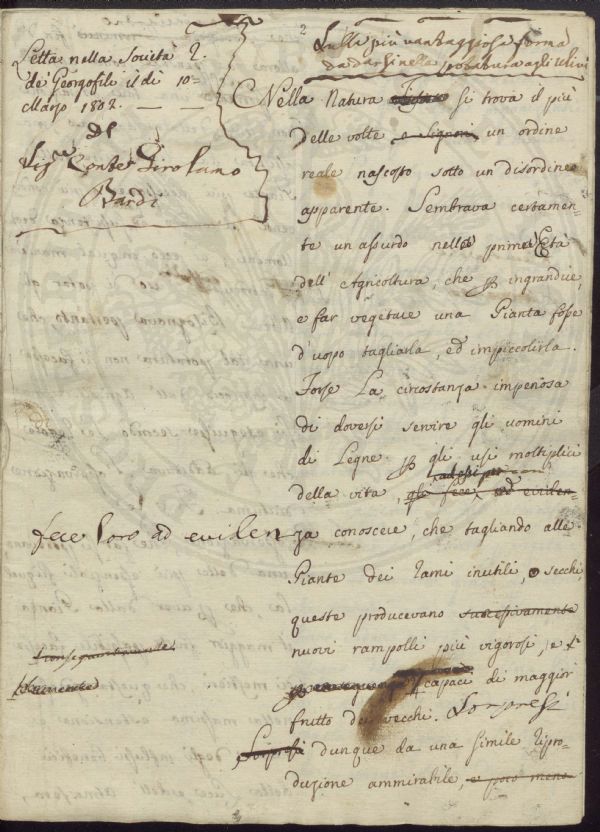 2
Letta nella Società R.
de' Georgofili il dì 10
Marzo 1802.
Del
Sig.re Conte Girolamo
Bardi
Sulla più vantaggiosa forma
da darsi nella potatura agli Ulivi
Nella Natura si trova il più
delle volte e signori un ordine
reale nascosto sotto un disordine
apparente. Sembrava certamen-
te un assurdo nella prima Età
dell' Agricoltura, che p ingrandire,
e far vegetare una Pianta fosse
d'uopo tagliarla, ed impiccolirla.
Forse La circostanza imperiosa
di doversi servire gli uomini
di Legne p gli usi moltiplici
della vita, gli fece ad eviden-
fece loro ad eviden
za conoscere, che tagliando alle
Piante dei rami inutili, o secchi,
queste producevano successivamente
nuovi rampolli più vigorosi, e
conseguentemente
capaci di maggior
frutto dei vecchi. Sorpresi
Sorpresi dunque da una simile ripro-
duzione ammirabile, e poco meno